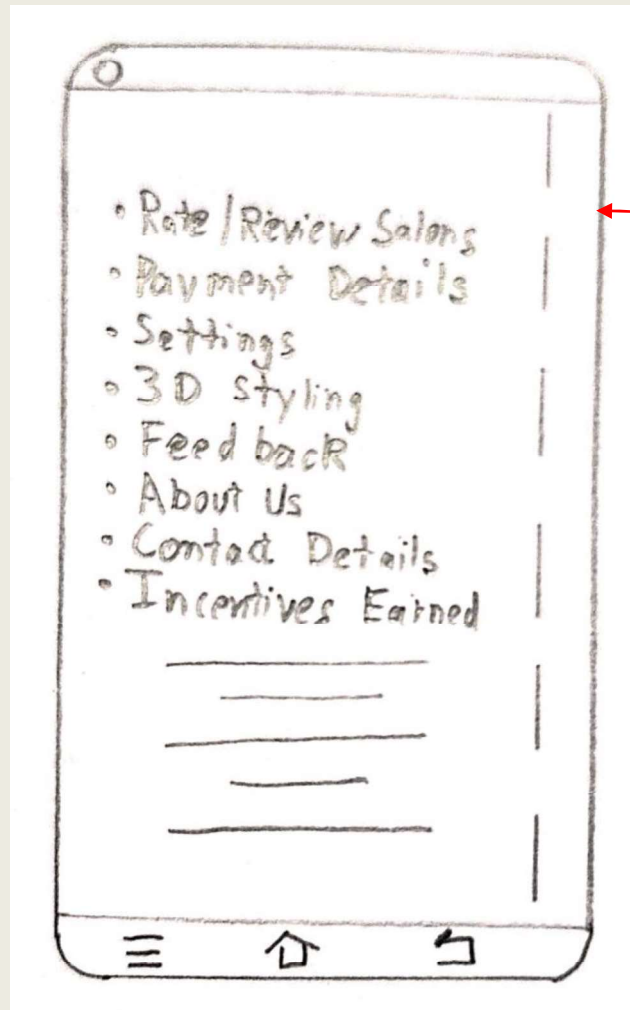 • Rate/Review Salons
• Payment Details
• Settings
• 3D styling
• Feedback
• About Us
• Contact Details
• Incentives Earned